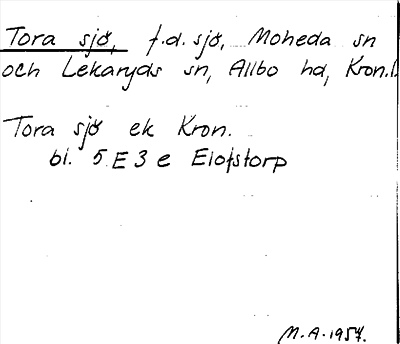 Tora sjö, f.d. sjö, Moheda sn
och Lekaryds sn, Allbo hd, Kron.l.
Tora sjö ek Kron.
bl. 5 E 3 e Elofstorp
M.A. 1957.